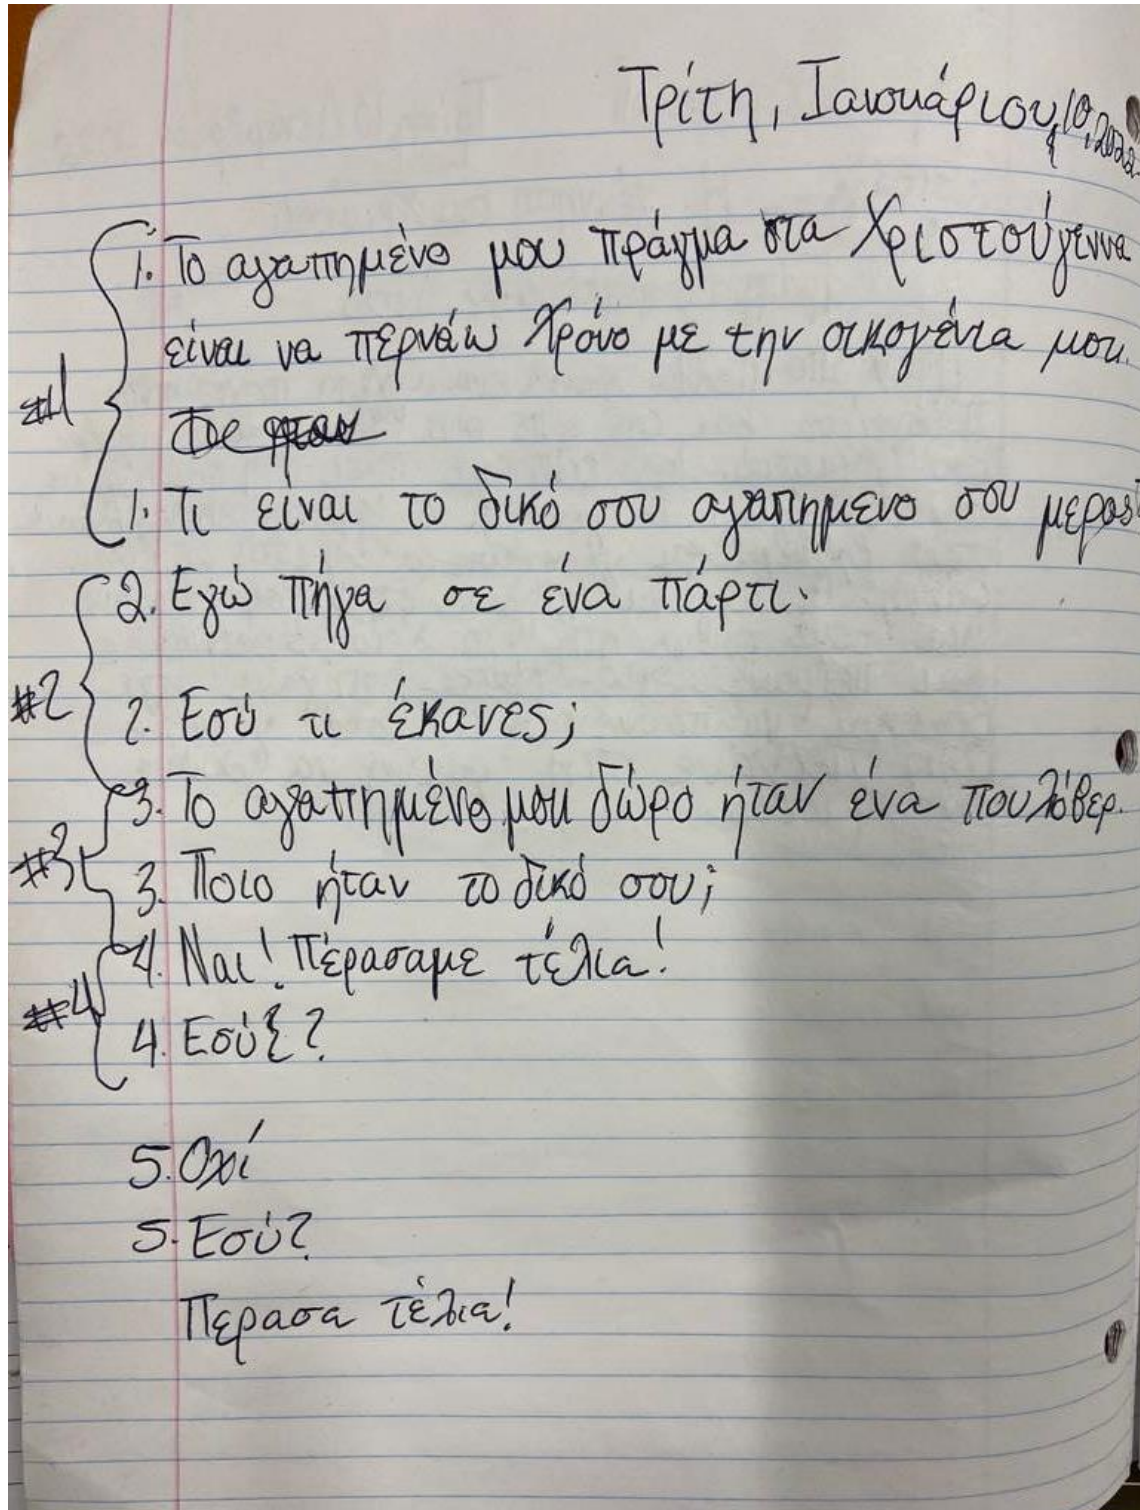 Τρίτη, Ιανουάριου, 10, 2022
1. Το αγαπημένο μου πράγμα στα Χριστούγεννα
είναι να περνάω Χρόνο με την οικογένια μου.
1. Τι είναι το δικό σου αγαπημενο σου μερος
#1
2. Εγώ πήγα σε ένα πάρτι.
#2
2. Εσύ τι έκανες;
3. Το αγαπημένο μου δώρο ήταν ένα πουλόβερ.
#3
3. Ποιο ήταν το δικό σου;
4. Ναι! Πέρασαμε τέλια!
#4
4. Εσύ ?
5. Οχί
5. Εσύ?
Περασα τέλια!